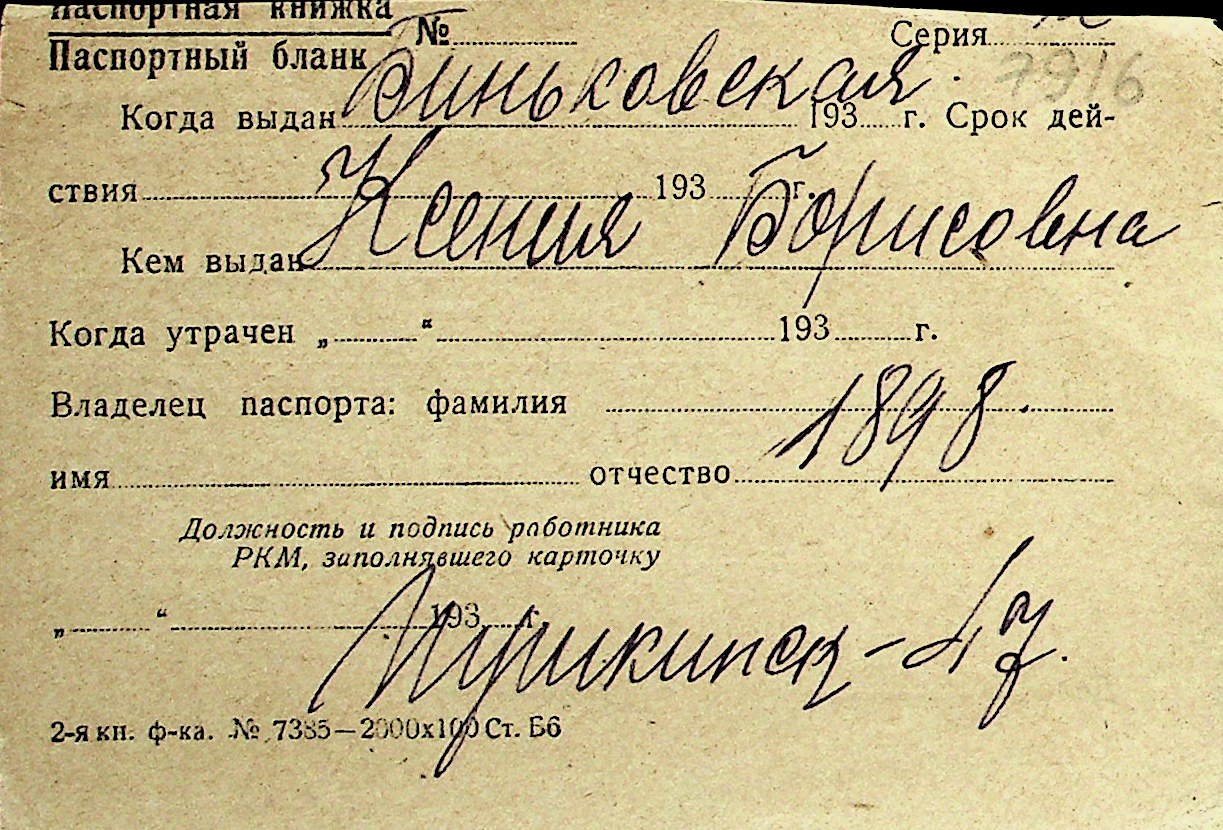 Паспортная книжка
Паспортный бланк № Серия
7916
Биньковская
Когда выдан 193 г. Срок дей-
ствия 193 г.
Ксения Борисовна
Кем выдан
Когда утрачен „ “ 193 г.
Владелец паспорта: фамилия
1898.
имя отчество
Должность и подпись работника
РКМ, заполнявшего карточку
„ “ 193 г.
Пушкинск – 47.
2-я кн. ф-ка. № 7385—2000х100 Ст. Б6